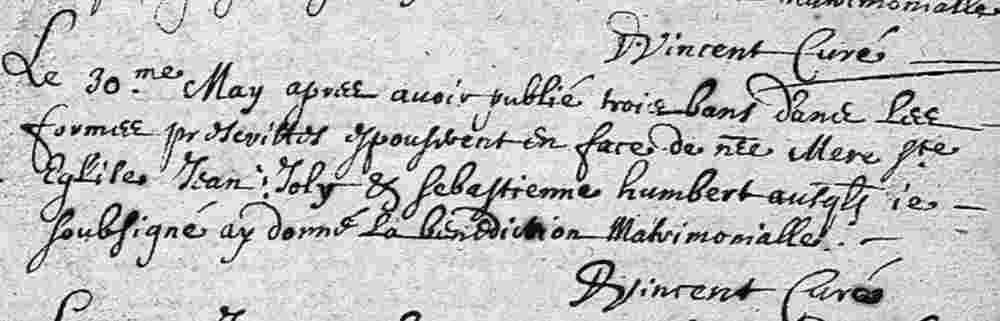 matrimonialle
D Vincent Curé
Le 30.me May apres avoir publié trois bans dans les
formes prescrittes espouserent en face de nre Mere ste
Eglise Jean Joly & sebastienne humbert ausqls ie
soubsigné ay donné la benediction Matrimonialle.
D Vincent Curé